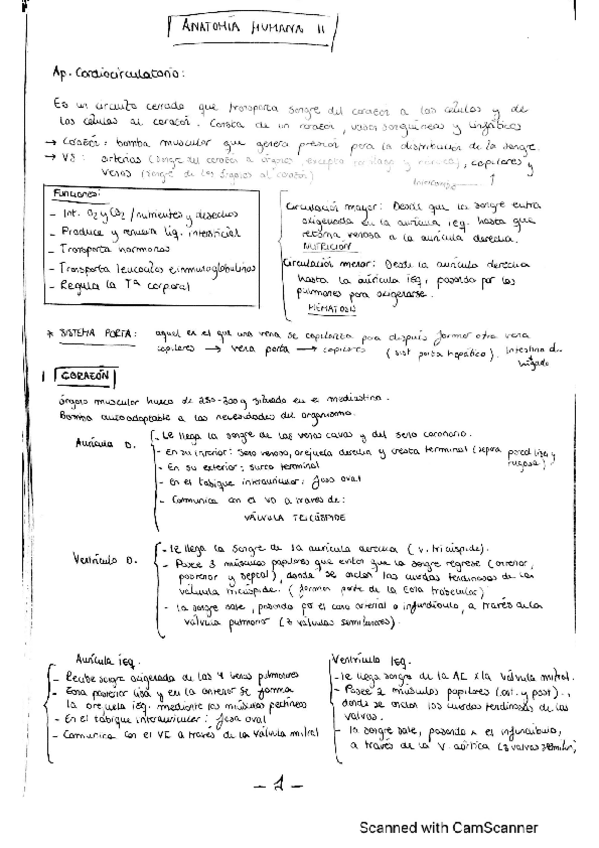 ANATOMÍA HUMANA II
Ap. Cardiocirculatorio:
Es un circuito cerrado que transporta sangre del corazón a las células y de
las células al corazón. Consta de un corazón, vasos sanguíneos y linfáticos
→ Corazón: bomba muscular que genera presión para la distribución de la sangre.
→ VS: arterias (sangre del corazón a órganos, excepto ), capilares y
venas (sangre de los órganos al corazón)
Funciones:
- Int. O2 y CO2 / nutrientes y desechos
- Produce y renueva liq. intersticial
- Transporta hormonas
- Transporta leucocitos e inmunoglobulinas
- Regula la Tª corporal
Circulación mayor: Desde que la sangre entra
oxigenada en la aurícula izq. hasta que
retorna venosa a la aurícula derecha.
NUTRICIÓN
Circulación menor: Desde la aurícula derecha
hasta la aurícula izq, pasando por los
pulmones para oxigenarse.
HEMATOSIS
* SISTEMA PORTA: aquel en el que una vena se capilariza para después formar otra vena
capilares → vena porta → capilares (sist porta hepático). Intestino
hígado
1 CORAZÓN
Órgano muscular hueco de 250-300g situado en el mediastino.
Bomba autoadaptable a las necesidades del organismo.
Aurícula D.
- Le llega la sangre de las venas cavas y del seno coronario.
- En su interior: Seno venoso, orejuela derecha y cresta terminal (separa pared lisa y
rugosa)
- En su exterior: surco terminal
- En el tabique interauricular: fosa oval
- Comunica con el VD a través de:
VÁLVULA TRICÚSPIDE
Ventrículo D.
- Le llega la sangre de la aurícula derecha (v. tricúspide).
- Posee 3 músculos papilares que evitan que la sangre regrese (anterior,
posterior y septal), donde se anclan las cuerdas tendinosas de la
válvula tricúspide. (forman parte de la trabecular)
- La sangre sale, pasando por el cono arterial o infundíbulo, a través de la
válvula pulmonar (3 válvulas semilunares).
Aurícula izq.
- Recibe sangre oxigenada de las 4 venas pulmonares
- Cara posterior lisa y en la anterior se forma
la orejuela izq. mediante los músculos pectíneos
- En el tabique interauricular: fosa oval
- Comunica con el VE a través de la válvula mitral
Ventrículo izq.
- Le llega sangre de la x la válvula mitral.
- Posee 2 músculos papilares (ant. y post).,
donde se anclan las cuerdas tendinosas de las
valvas.
- La sangre sale, pasando x el infundíbulo,
a través de la V. aórtica (3 valvas
- 1 -
Scanned with CamScanner